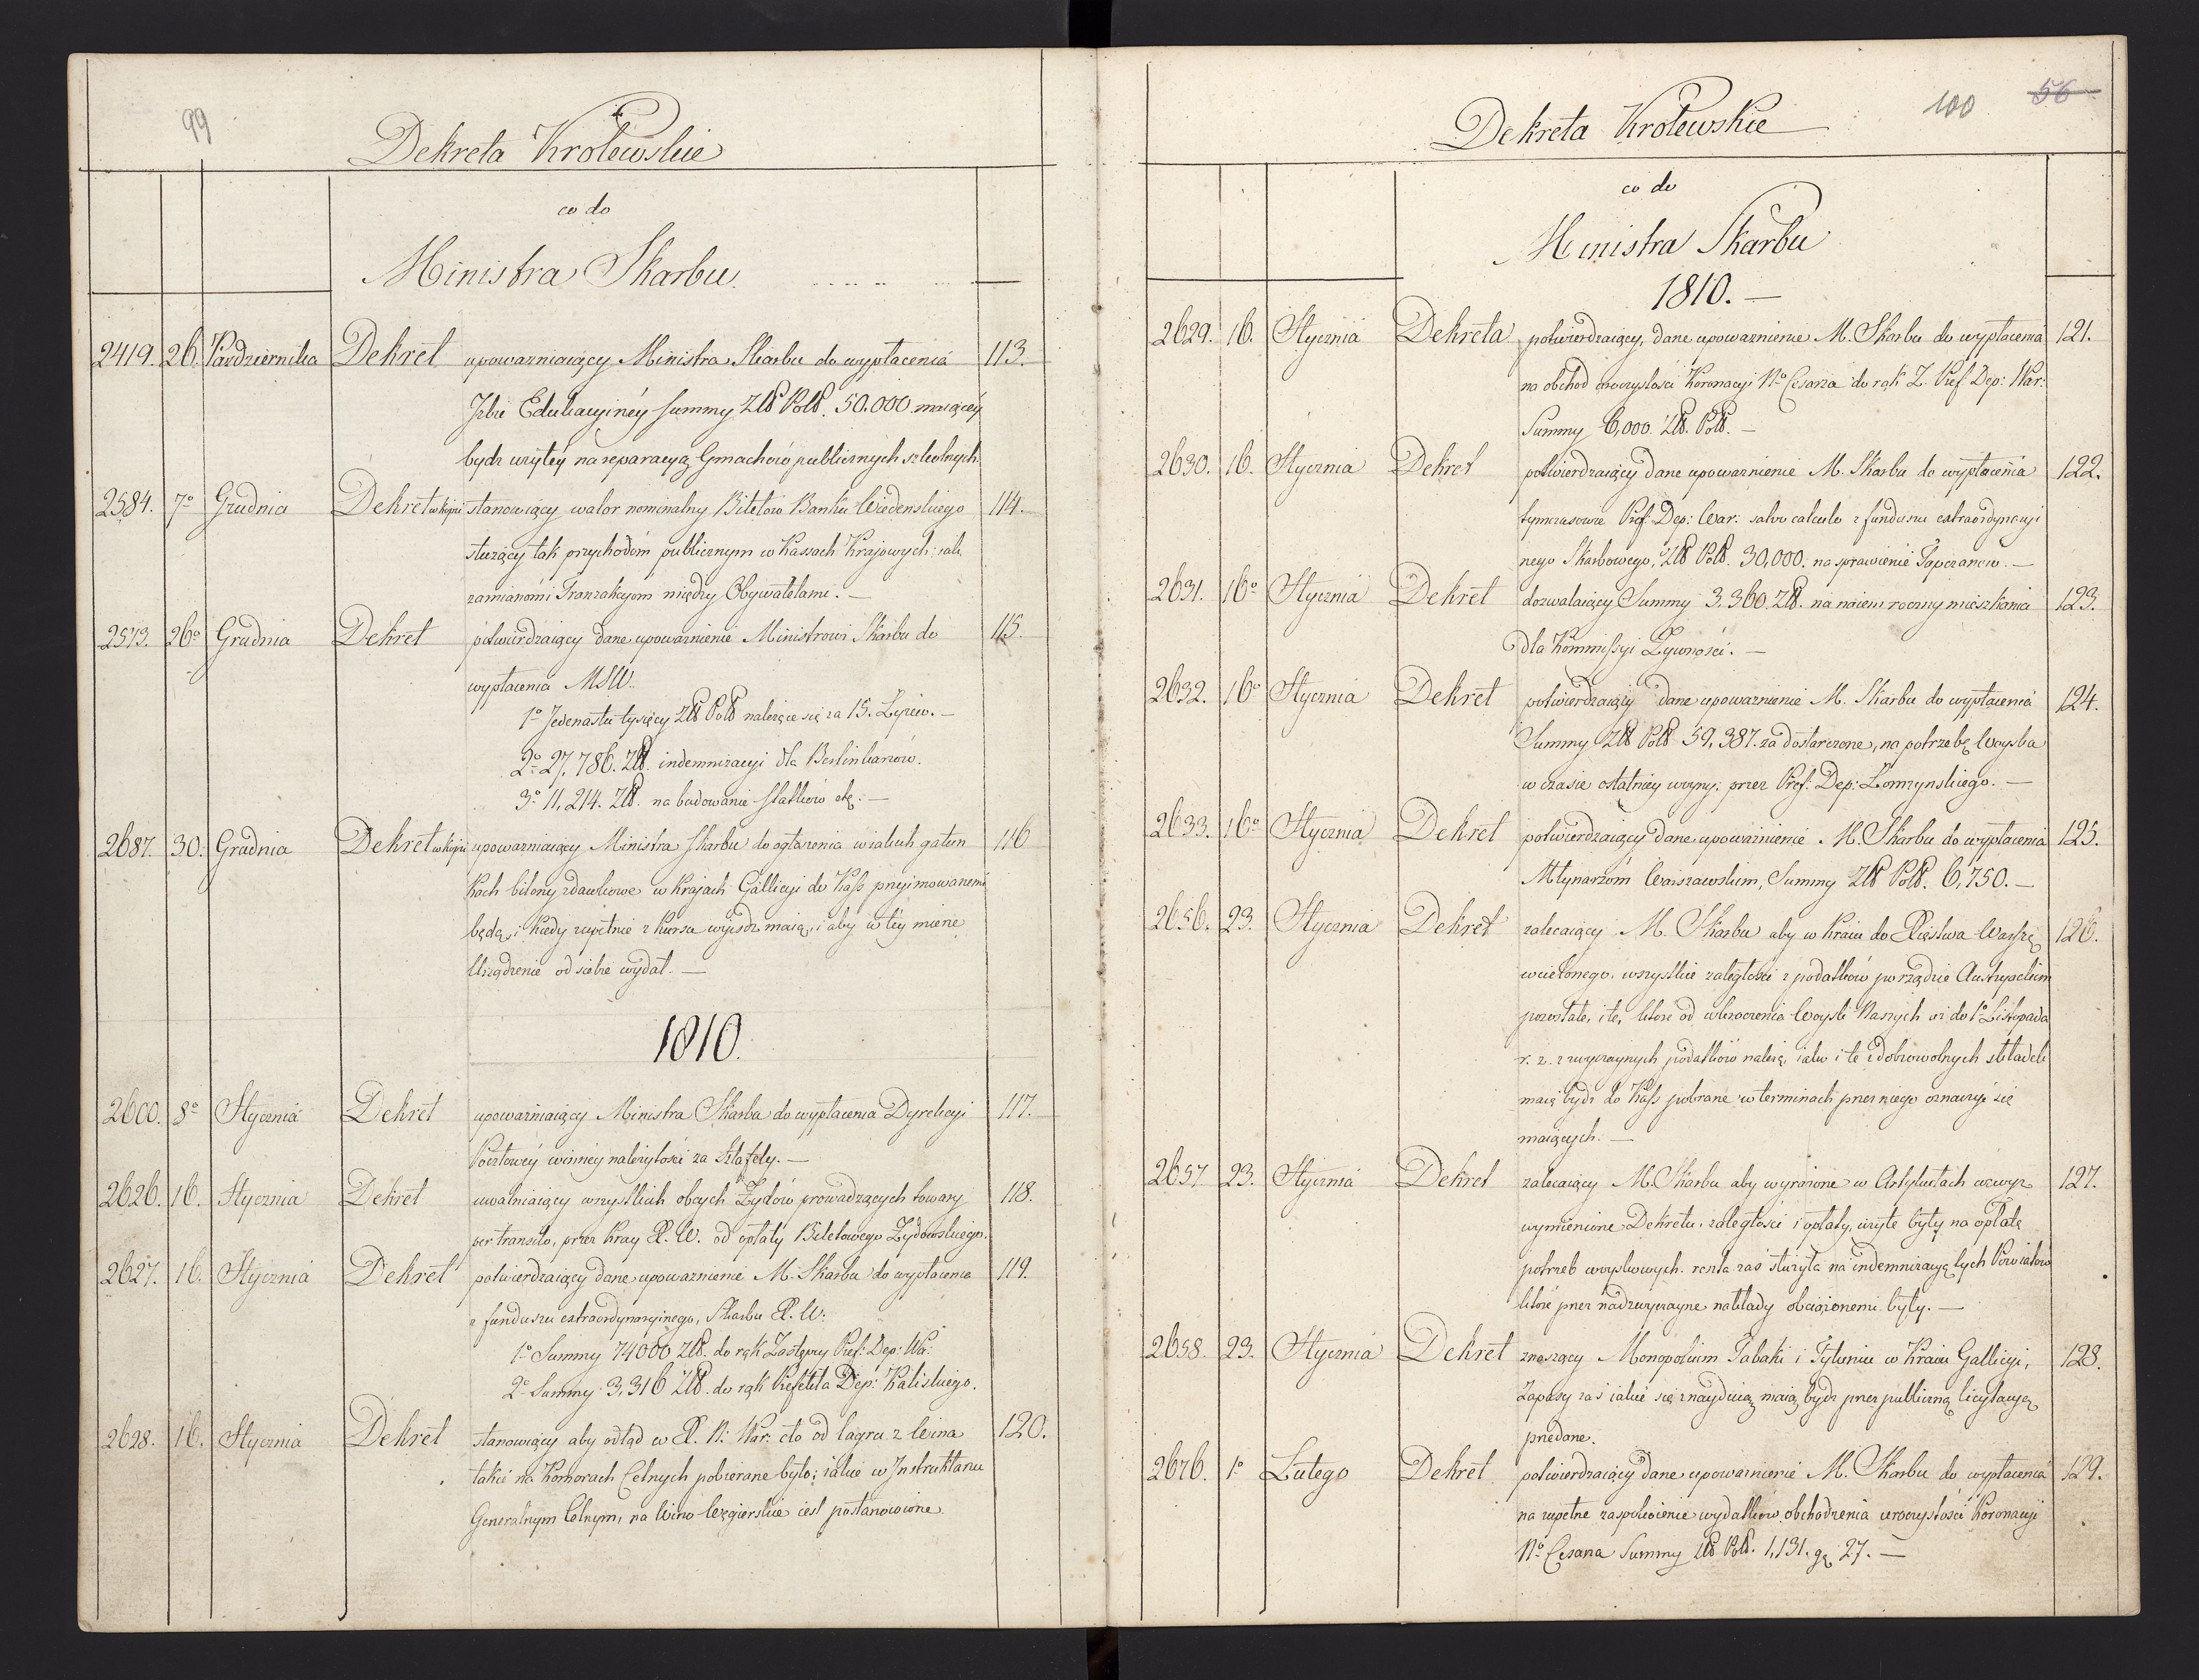 99
Dekreta Krolewskie
co do
Ministra Skarbu.
2419. 26. Pazdziernika Dekret upowazniaiący Ministra Skarbu do wypłacenia 113.
Izbie Edukacyiney Summy Złł Poll. 50.000 maiącey
bydz użytey na reparacyą Gmachów publicznych szkolnych.
2584. 7º Grudnia Dekret w kopii stanowiący walor nominalny Biletow Banku Wiedenskiego 114.
służący tak przychodom publicznym w Kassach Krajowych: iak
zamianom i Tranzakcyom między Obywatelami. —
2573. 26º Grudnia Dekret potwierdzaiący dane upowaznienie Ministrowi Skarbu do 115.
wypłacenia MSW.
1º Jedenastu tysięcy Złł Poll należące się za 15.
2º 27,786. Złł. indemnizacyi dla
3º 11,214. Złł. na budowanie Statkow etc. —
2687. 30. Grudnia Dekret w kopii upowazniaiący Ministra Skarbu do ogłoszenia w iakich gatun 116
kach bilony zdawkowe w Krajach Gallicyi do Kass przyimowanemi
będą, i kiedy zupełnie z kursu wyisdz maią, i aby w tey mierze
Urządzenie od siebie wydał. —
1810.
2600. 8º Stycznia Dekret upowazniaiący Ministra Skarbu do wypłacenia Dyrekcyi 117.
Pocztowey winney należytości za Sztafety. —
2626. 16. Stycznia Dekret uwalniaiący wszystkich obcych Żydów prowadzących towary 118.
per transito, przez Kray X. W. od opłaty Biletowego Żydowskiego.
2627. 16. Stycznia Dekret potwierdzaiący dane upowaznienie M. Skarbu do wypłacenia 119.
z funduszu extraordynaryinego, Skarbu X. W:
1º Summy 74000 Złł. do rąk Zastępcy Pref: Dep: Wa:
2º Summy 3,316 Złł. do rąk Prefekta Dep: Kaliskiego.
2628. 16. Stycznia Dekret stanowiący aby odtąd w X. War: cło od lagru z Wina 120.
takie na Komorach Celnych pobierane było; iakie w Instruktarzu
Generalnym Celnym, na Wino Węgierskie iest postanowione.
100 56
Dekreta Krolewskie
co do
Ministra Skarbu
1810. —
2629. 16. Stycznia Dekreta potwierdzaiący, dane upowaznienie M. Skarbu do wypłacenia 121.
na obchod uroczystości Koronacyi Nº Cesarza do rąk Z. Pref. Dep: War:
Summy 6,000. Złł. Poll. —
2630. 16. Stycznia Dekret potwierdzaiący dane upowaznienie M. Skarbu do wypłacenia 122.
tymczasowie Pref: Dep: War: salvo calculo z funduszu extraordynaryi
nego Skarbowego, Złł Poll. 30,000. na sprawienie Tapczanow. —
2631. 16º Stycznia Dekret dozwalaiący Summy 3.360. Złł. na naiem roczny mieszkania 123.
dla Kommissyi Żywności. —
2632. 16º Stycznia Dekret potwierdzaiący dane upowaznienie M. Skarbu do wypłacenia 124.
Summy Złł Poll 59,387. za dostarczone, na potrzebę Woyska
w czasie ostatniey woyny, przez Pref: Dep: Łomzynskiego. —
2633. 16º Stycznia Dekret potwierdzaiący dane upowaznienie M. Skarbu do wypłacenia 125.
Młynarzóm Warszawskim, Summy Złł Poll. 6,750. —
2656. 23. Stycznia Dekret zalecaiący M. Skarbu aby w Kraiu do Xięstwa Warsze 126.
wcielonego, wszystkie zaległości z podatków po rządzie Austryackim
pozostałe, i te, które od wkroczenia Woysk Naszych aż do 1º Listopada
r. z. z zwyczaynych podatków należą, iako i te z dobrowolnych składek
maią bydz do Kass pobrane w terminach przez niego oznaczyć się
maiących. —
2657 23. Stycznia Dekret zalecaiący M. Skarbu aby wyrażone w Artykułach wzwyz 127.
wymienione Dekretu, zaległości i opłaty, użyte były na opłatę
potrzeb woyskowych. reszta zaś służyła na indemnizacyą tych Powiatów
które przez nadzwyczayne nakłady obciążonemi były. —
2658. 23. Stycznia Dekret znoszący Monopolium Tabaki i Tytuniu w Kraiu Gallicyi, 128.
Zapasy zaś iakie się znayduią maią bydz przez publiczną licytacyą
przedane.
2676. 1º Lutego Dekret potwierdzaiący dane upowaznienie M. Skarbu do wypłacenia 129.
na zupełne zaspokoienie wydatków obchodzenia uroczystości Koronacyi
Nº Cesarza Summy Złł Poll. 1,131. gr 27. —